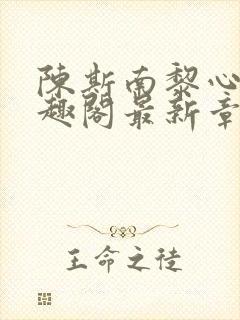 陳斯南黎心
趣閣最新章
王命之徒